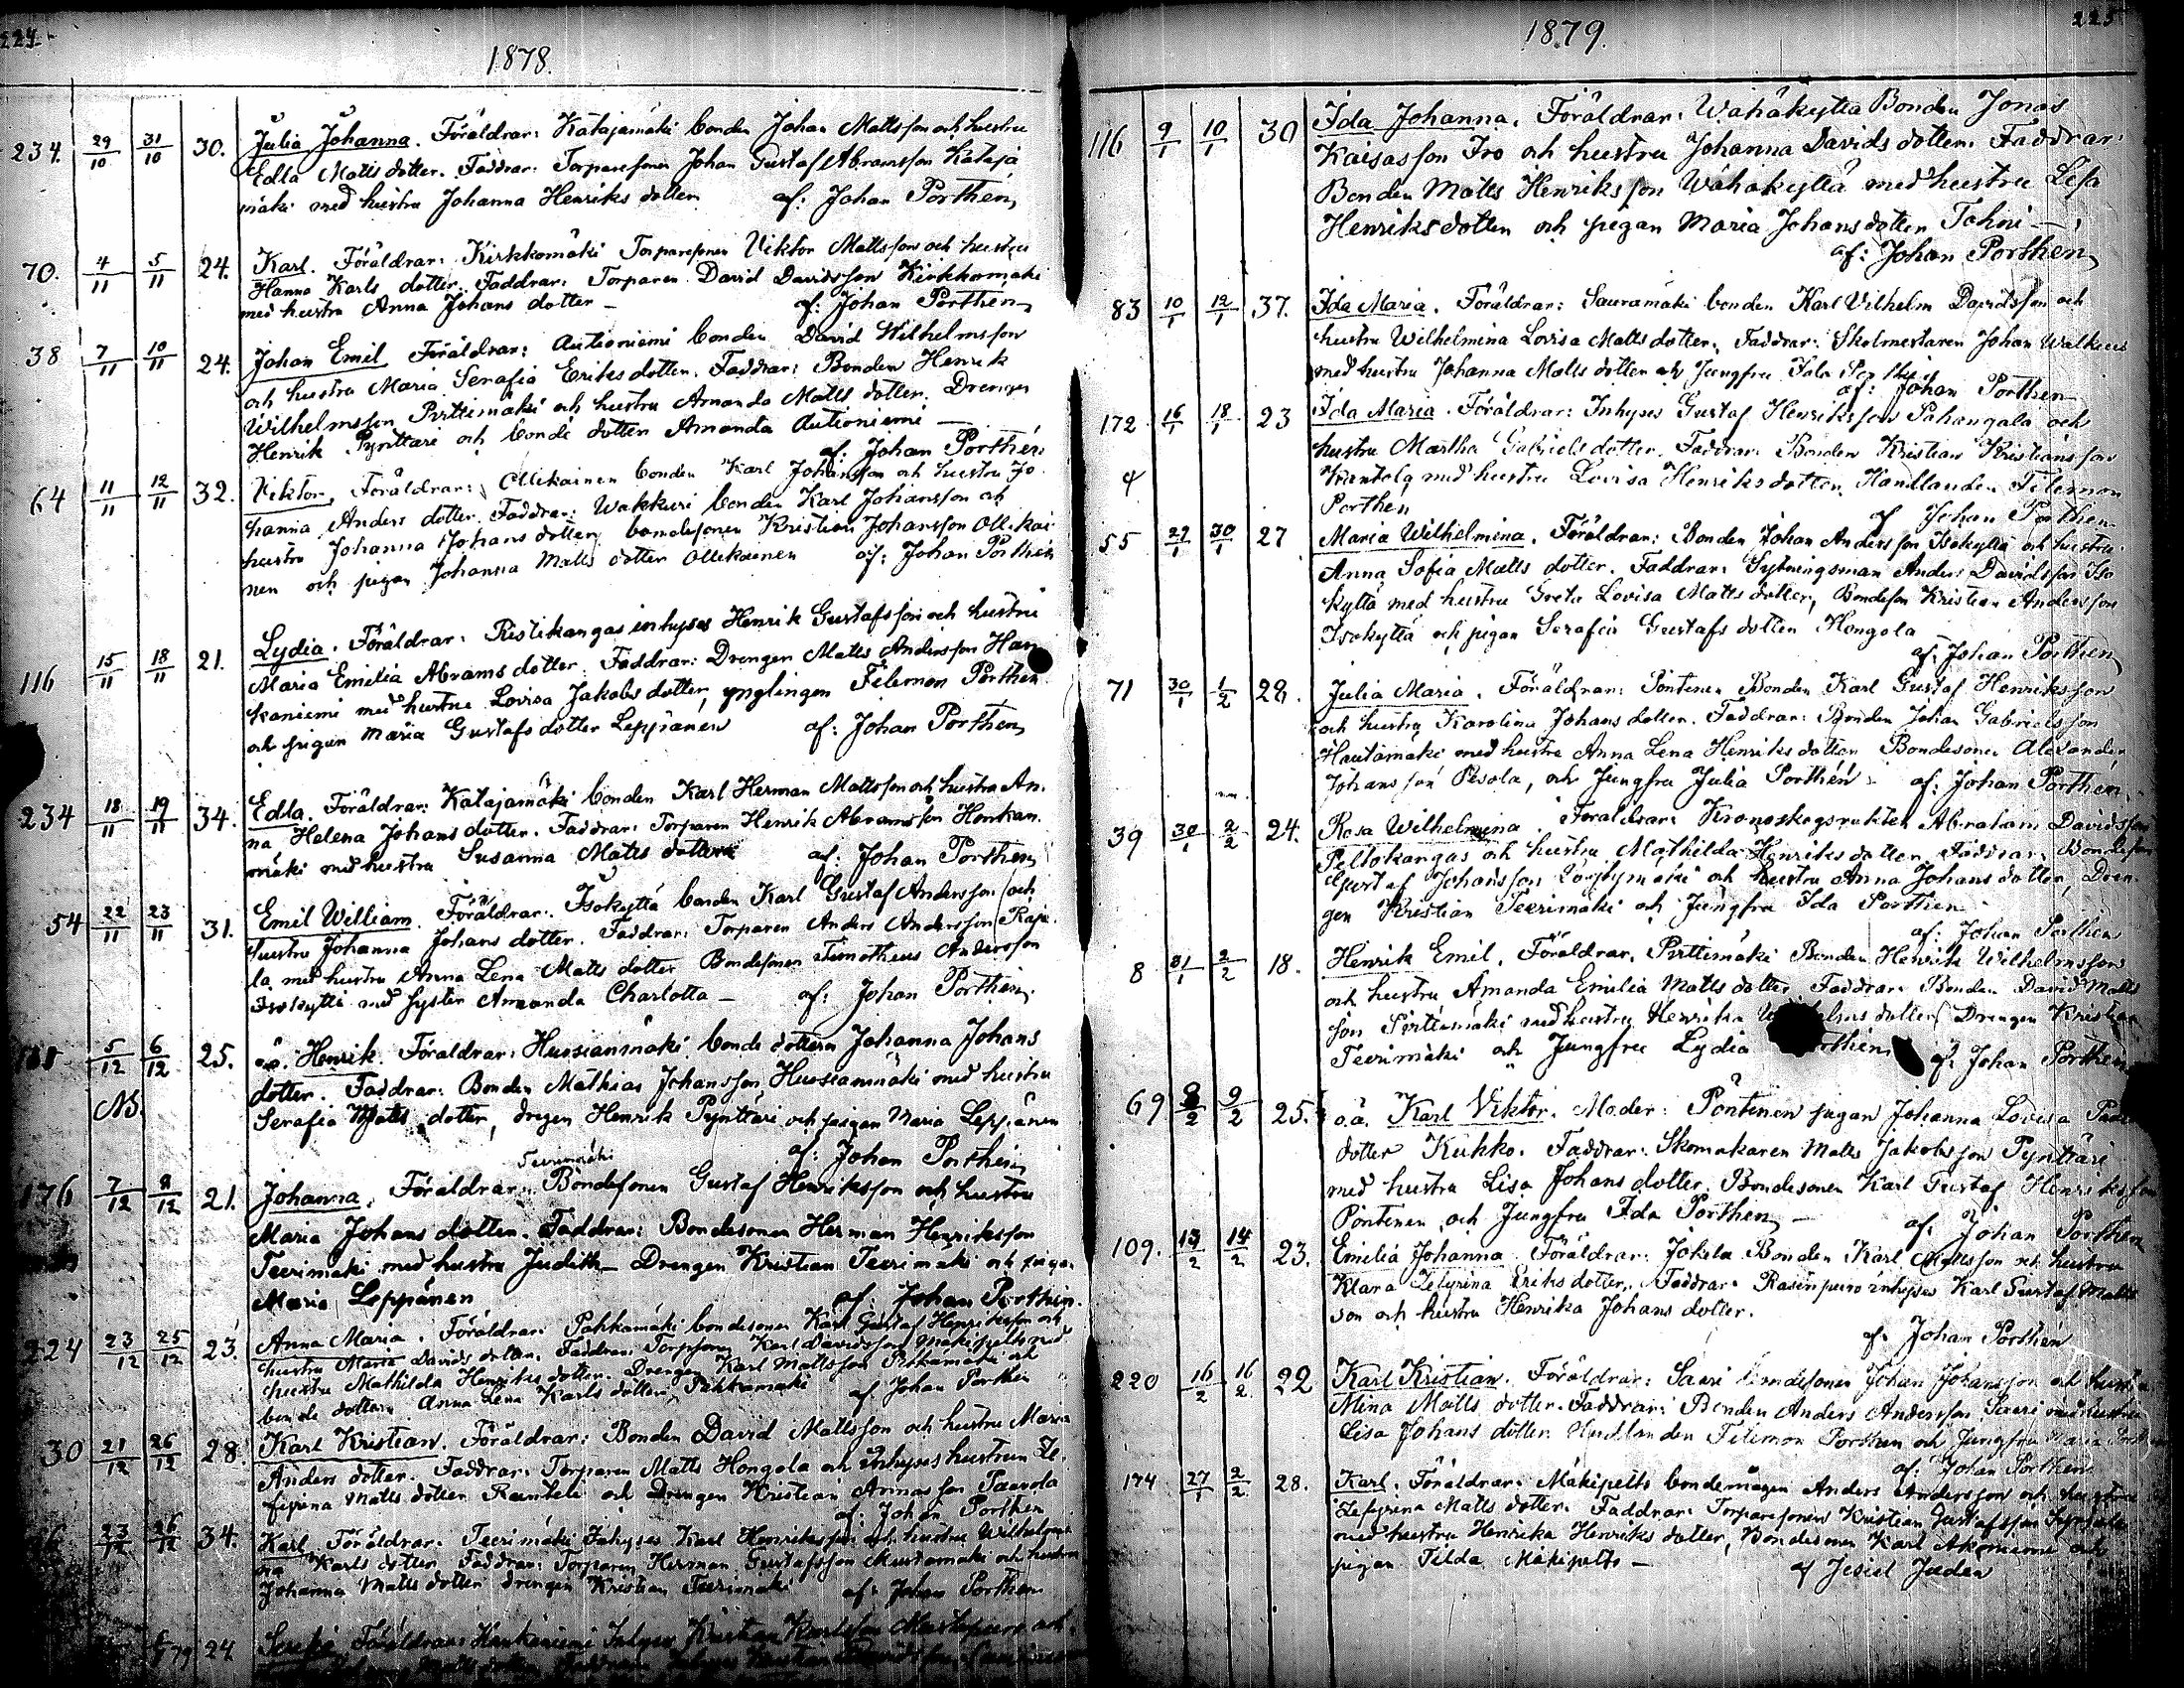 224.
1878.
234. 29/10 31/10 30. Julia Johanna. Föräldrar: Katajamäki bonden Johan Mattsson och hustru
Edla Matts dotter. Faddrar: Torparesonen Johan Gustaf Abramsson Kataja
mäki med hustru Johanna Henriks dotter af: Johan Porthén
70. 4/11 5/11 24. Karl. Föräldrar: Kirkkomäki Torparesonen Viktor Mattsson och hustru
Hanna Karls dotter. Faddrar: Torparen David Davidsson Kirkkomäki
med hustru Anna Johans dotter – af: Johan Porthén
38 7/11 10/11 24. Johan Emil Föräldrar: Autioniemi bonden David Wilhelmsson
och hustru Maria Serafia Eriks dotter. Faddrar: Bonden Henrik
Wilhelmsson Pirttimäki och hustru Amanda Matts dotter. Drengen
Henrik Pynttäri och bonde dotter Amanda Autioniemi –
af: Johan Porthén
64 11/11 12/11 32. Viktor, Föräldrar: Ollikainen bonden Karl Johansson och hustru Jo
hanna Anders dotter. Faddrar: Wakkuri bonden Karl Johansson och
hustru Johanna Johans dotter, bondesonen Kristian Johansson Ollikai
nen och pigan Johanna Matts dotter Ollikainen af: Johan Porthén
116 15/11 18/11 21. Lydia. Föräldrar: Ristikangas inhyses Henrik Gustafsson och hustru
Maria Emilia Abrams dotter. Faddrar: Drengen Matts Andersson Han
kaniemi med hustru Lovisa Jakobs dotter, ynglingen Filemon Porthén
och pigan Maria Gustafs dotter Leppänen af: Johan Porthén
234 18/11 19/11 34. Edla. Föräldrar: Katajamäki bonden Karl Herman Mattsson och hustru An.
na Helena Johans dotter. Faddrar: Torparen Henrik Abramsson Honkan
mäki med hustru Susanna Matts dotter af: Johan Porthén
54 22/11 23/11 31. Emil William. Föräldrar: Isokyttä bonden Karl Gustaf Andersson och
hustru Johanna Johans dotter. Faddrar: Torparen Anders Andersson Raja
la med hustru Anna Lena Matts dotter Bondesonen Timotheus Andersson
Isokyttä med syster Amanda Charlotta – af: Johan Porthén.
5/12 6/12 25. o.ä. Henrik. Föräldrar: Hussianmäki bonde dottern Johanna Johans
NB. dotter. Faddrar: Bonden Mathias Johansson Hussianmäki med hustru
Serafia Matts dotter, dregen Henrik Pynttäri och pigan Maria Leppänen
af: Johan Porthén
Teerimäki
176 7/12 8/12 21. Johanna. Föräldrar: Bondesonen Gustaf Henriksson och hustru
Maria Johans dotter. Faddrar: Bondesonen Herman Henriksson
Teerimäki med hustru Judith – Drengen Kristian Teerimäki och pigan
Maria Leppänen af: Johan Porthén.
224 23/12 25/12 23. Anna Maria. Föräldrar: Pahkamäki bondesonen Karl Gustaf Henriksson och
hustru Maria Davids dotter. Faddrar: Karl Davidsson Mäkipelto med
hustru Mathilda Henriks dotter. Drengen Karl Mattsson Pahkamäki och
bonde dottern Anna Lena Karls dotter Pahkamäki af Johan Porthén
30 21/12 26/12 28. Karl Kristian. Föräldrar: Bonden David Mattsson och hustru Maria
Anders dotter. Faddrar: Torparen Matts Hongola och Inhyses hustrun Ze.
firina Matts dotter och Drengen Kristian Paavola
af: Johan Porthén
23/12 26/12 34. Karl Föräldrar: Teerimäki Inhyses Karl Henriksson och hustru Wilhelmi
na Karls dotter Faddrar: Torparen Herman Gustafsson Mustamäki och hustru
Johanna Matts dotter drengen Kristian Teerimäki af: Johan Porthén
24. Föräldrar: Inhyses Kristian Karlsson och

225
1879.
116 9/1 10/1 30 Ida Johanna. Föräldrar: Wähäkyttä Bonden Jonas
Kaisasson Iso och hustru Johanna Davids dotter. Faddrar:
Bonden Matts Henriksson Wähäkyttä med hustru Lisa
Henriksdotter och pigan Maria Johansdotter Tohni –
af: Johan Porthén
83 10/1 12/1 37. Ida Maria. Föräldrar: Sauramäki bonden Karl Vilhelm Davidsson och
hustru Wilhelmina Lovisa Matts dotter. Faddrar: Skolmestaren Johan
med hustru Johanna Matts dotter och Jungfru Ida Porthén
af: Johan Porthén
172 16/1 18/1 23 Ida Maria. Föräldrar: Inhyses Gustaf Henriksson Pahangala och
hustru Martha Gabriels dotter. Faddrar: Bonden Kristian Kristiansson
4 med hustru Lovisa Henriks dotter. Handlanden Filemon
Porthén af Johan Porthén
55 29/1 30/1 27 Maria Wilhelmina. Föräldrar: Bonden Johan Andersson Isokyttä och hustru
Anna Sofia Matts dotter. Faddrar: Sytningsman Anders Davidsson Iso
kyttä med hustru Greta Lovisa Matts dotter, Bondeson Kristian Andersson
Isokyttä och pigan Serafia Gustafs dotter Hongola
af: Johan Porthén
71 30/1 1/2 28. Julia Maria. Föräldrar: Pöntinen Bonden Karl Gustaf Henriksson
och hustru Karolina Johans dotter. Faddrar: Bonden Johan Gabrielsson
Hautamäki med hustru Anna Lena Henriks dotter Bondesonen Alexander
Johansson Pesola, och Jungfru Julia Porthén – af: Johan Porthén
39 30/1 2/2 24. Rosa Wilhelmina. Föräldrar: Kronoskogsvakten Abraham Davidsson
Peltokangas och hustru Mathilda Henriks dotter. Faddrar: Bondeson
Gustaf Johansson och hustru Anna Johans dotter, Dren
gen Kristian Teerimäki och Jungfru Ida Porthén
af: Johan Porthén
8 31/1 2/2 18. Henrik Emil. Föräldrar. Pirttimäki Bonden Henrik Wilhelmsson
och hustru Amanda Emilia Matts dotter Faddrar: Bonden David Matts
son Pirttimäki med hustru Henrika dotter Drengen Kristian
Teerimäki och Jungfru Lydia af Johan Porthén
69 8/2 9/2 25. o.ä. Karl Viktor. Moder: Pöntinen pigan Johanna Lovisa
dotter Kukko. Faddrar: Skomakaren Matts Jakobsson Pynttäri
med hustru Lisa Johans dotter. Bondesonen Karl Gustaf Henriksson
Pöntinen och Jungfru Ida Porthén – af: Johan Porthén
109. 13/2 14/2 23. Emilia Johanna Föräldrar: Jokela Bonden Karl Mattsson och hustru
Klara Zefyrina Eriks dotter. Faddrar: Rasinpuro inhyses Karl Gustaf Matts
son och hustru Henrika Johans dotter.
af: Johan Porthén
220 16/2 16/2 22 Karl Kristian. Föräldrar: Saari bondesonen Johan Johansson och hustru
Mina Matts dotter. Faddrar: Bonden Anders Andersson Saari med hustru
Lisa Johans dotter. Handlanden Filemon Porthén och Jungfru Maria
af: Johan Porthén
174 27/1 2/2 28. Karl. Föräldrar: Mäkipelto bondemågen Anders Andersson och hustru
Zefyrina Matts dotter. Faddrar: Torparesonen Kristian Gustafsson
med hustru Henrika Henriks dotter, Bondesonen Karl Akonniemi och
pigan Tilda Mäkipelto – af Jesiel Juden